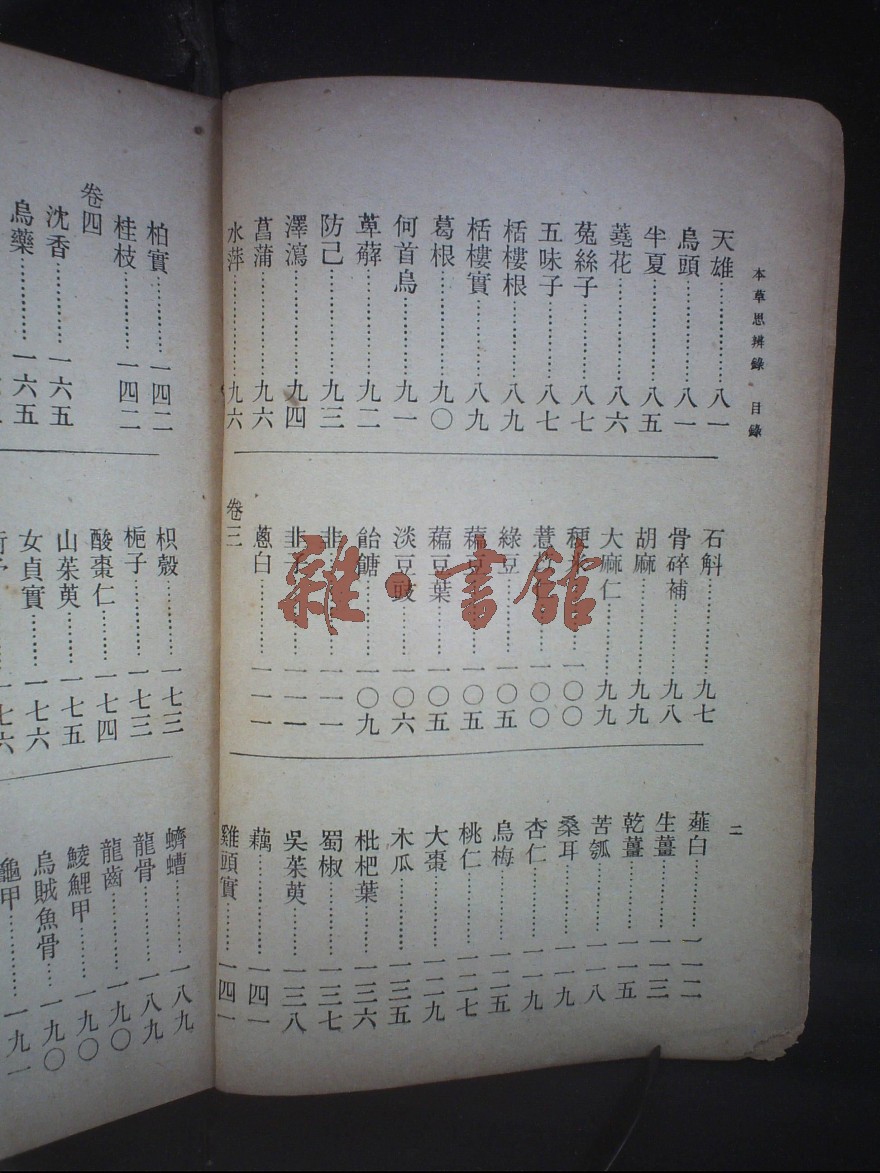 本草思辨錄 目錄
二
天雄…………八一
烏頭…………八一
半夏…………八五
蕘花…………八六
菟絲子…………八七
五味子…………八七
栝樓根…………八九
栝樓實…………八九
葛根…………九〇
何首烏…………九一
萆薢…………九二
防己…………九三
澤瀉…………九四
菖蒲…………九六
水萍…………九六
石斛…………九七
骨碎補…………九八
胡麻…………九九
大麻仁…………九九
稉米…………一〇〇
薏苡仁…………一〇〇
綠豆…………一〇五
藊豆…………一〇五
藊豆葉…………一〇五
淡豆豉…………一〇六
飴餹…………一〇九
韭…………一一一
韭子…………一一一
蔥白…………一一一
卷三
薤白…………一一二
生薑…………一一三
乾薑…………一一五
苦瓠…………一一八
桑耳…………一一九
杏仁…………一一九
烏梅…………一二五
桃仁…………一二七
大棗…………一二九
木瓜…………一三五
枇杷葉…………一三六
蜀椒…………一三七
吳茱萸…………一三八
藕…………一四一
雞頭實…………一四一
柏實…………一四二
桂枝…………一四二
卷四
沈香…………一六五
烏藥…………一六五
枳殼…………一七三
梔子…………一七三
酸棗仁…………一七四
山茱萸…………一七五
女貞實…………一七六
一七六
蠐螬…………一八九
龍骨…………一八九
龍齒…………一九〇
鯪鯉甲…………一九〇
烏賊魚骨…………一九〇
龜甲…………一九一
雜·書館